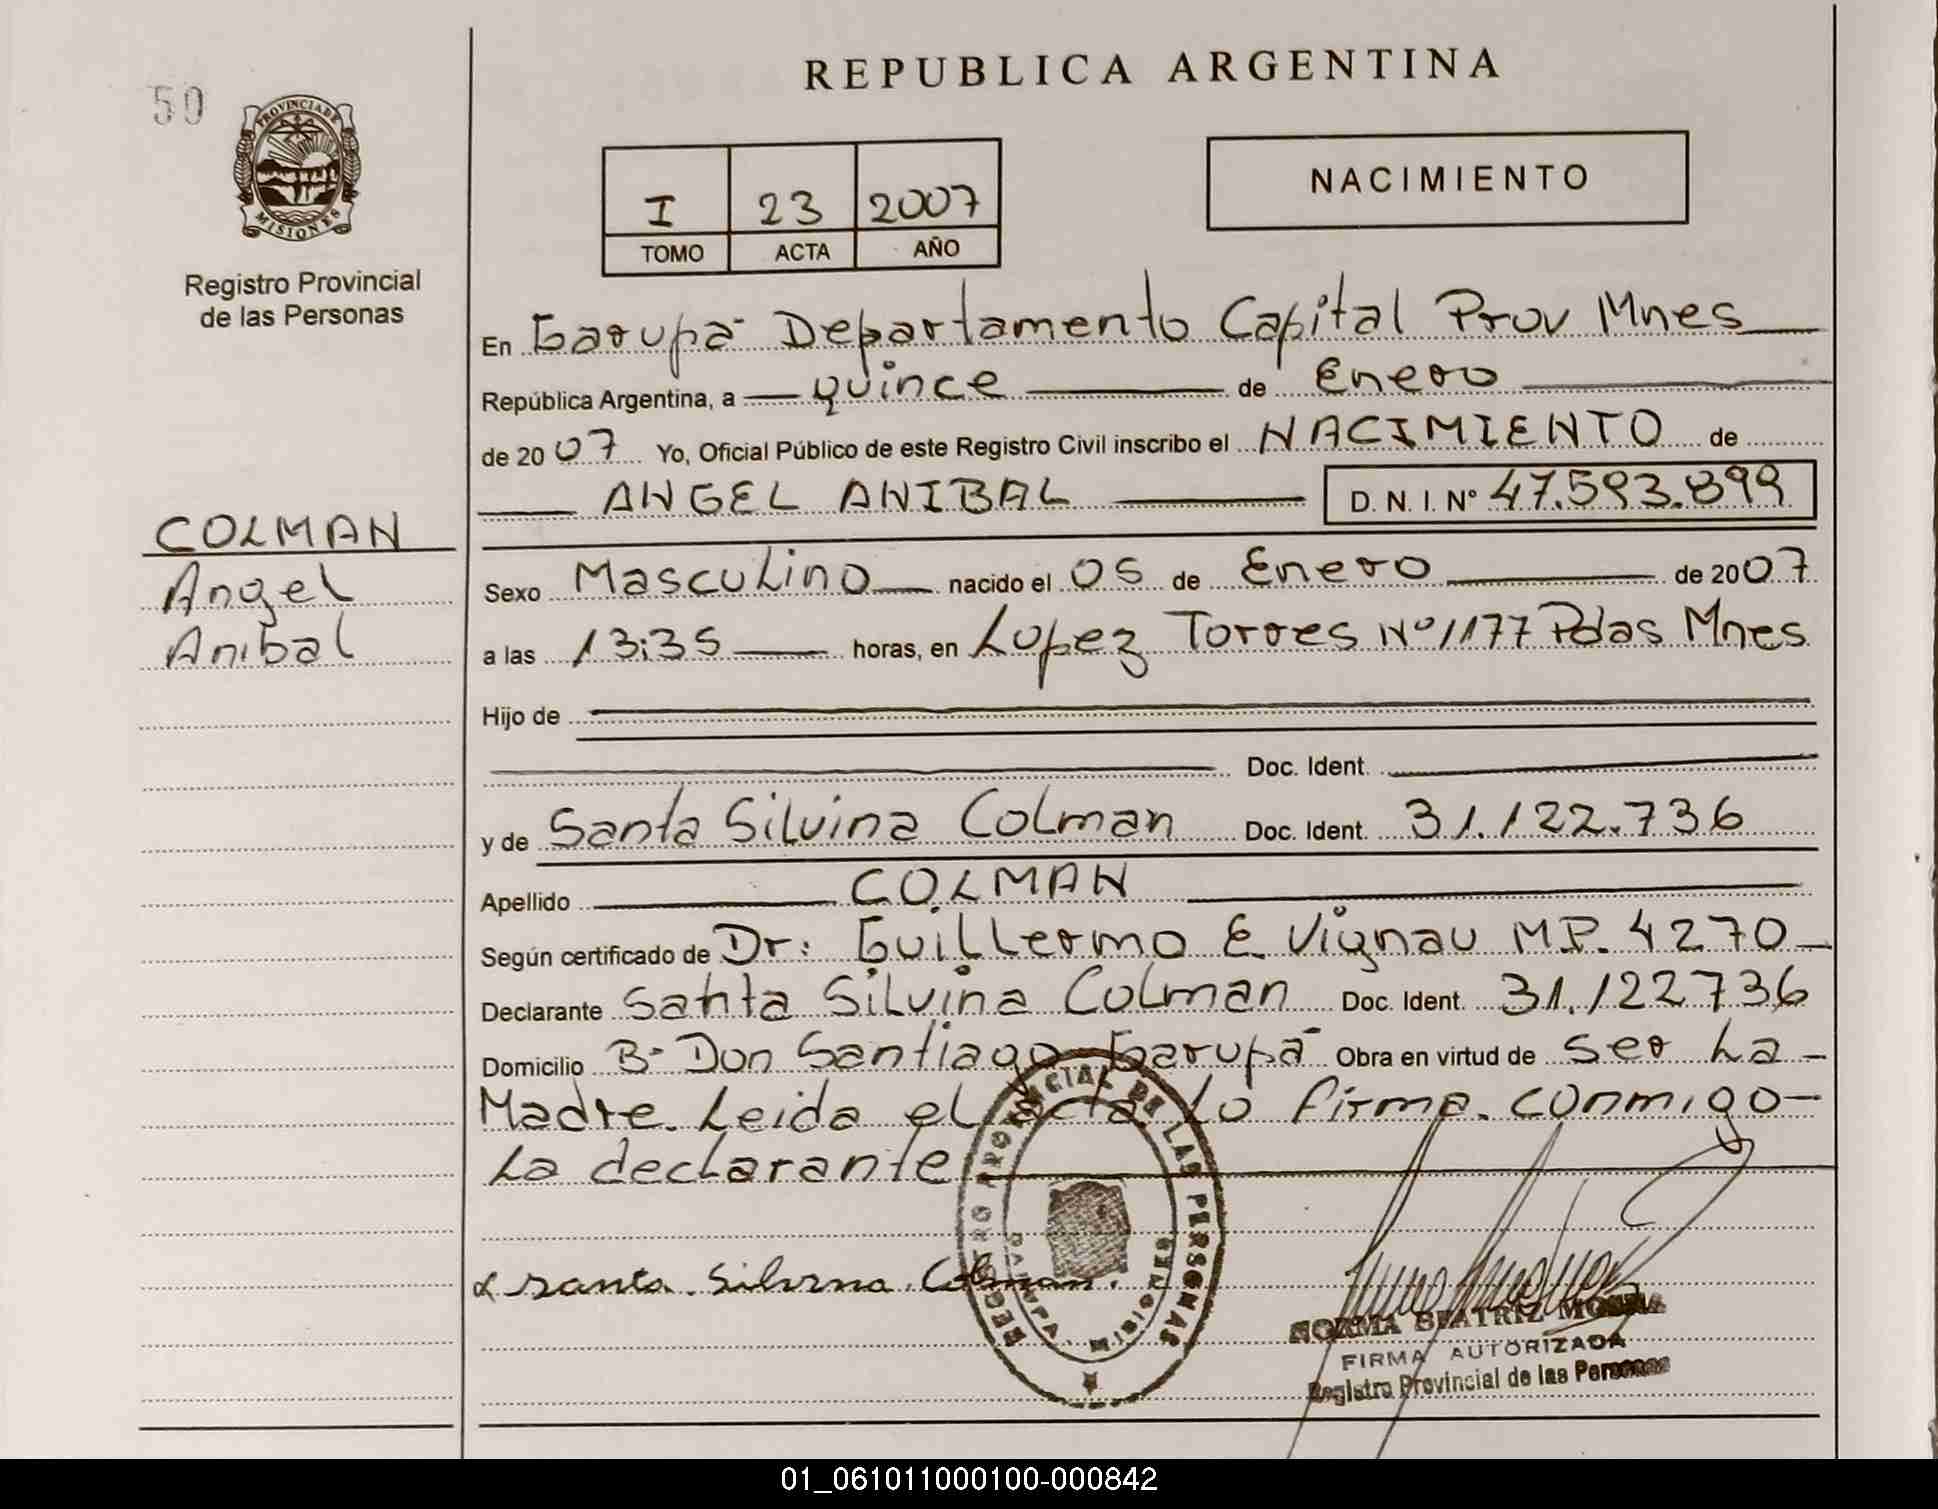 REPUBLICA ARGENTINA
50
PROVINCIA DE
MISIONES
Registro Provincial
de las Personas
I 23 2007
TOMO ACTA AÑO
NACIMIENTO
En Garupá Departamento Capital Prov Mnes
República Argentina, a quince de Enero
de 2007 Yo, Oficial Público de este Registro Civil inscribo el NACIMIENTO de
ANGEL ANIBAL D. N. I. N° 47.593.899
COLMAN
Angel
Anibal
Sexo Masculino nacido el 05 de Enero de 2007
a las 13:35 horas, en Lopez Torres Nº 1177 Pdas Mnes
Hijo de
Doc. Ident.
y de Santa Silvina Colman Doc. Ident. 31.122.736
Apellido COLMAN
Según certificado de Dr: Guillermo E. Vignau M.P. 4270
Declarante Santa Silvina Colman Doc. Ident. 31.122736
Domicilio B° Don Santiago Garupá Obra en virtud de ser La
Madre. Leida el acta Lo firma. conmigo
La declarante
REGISTRO PROVINCIAL DE LAS PERSONAS
GARUPA
Santa Silvina Colman.
NORMA BEATRIZ
FIRMA AUTORIZADA
Registro Provincial de las Personas
01_061011000100-000842